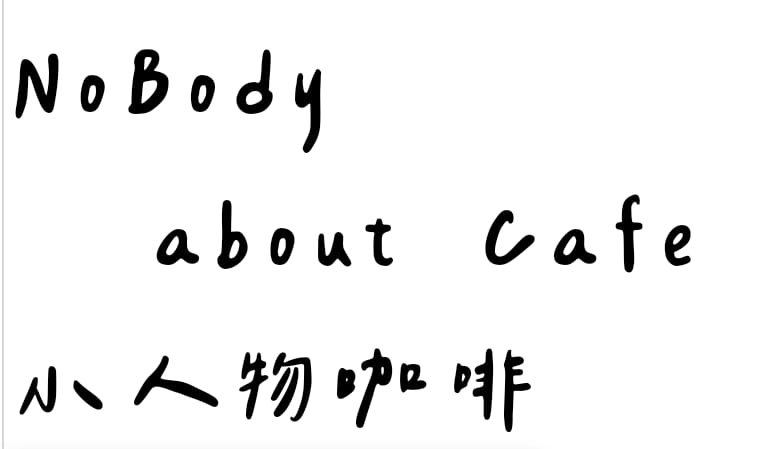 NoBody
about Cafe
小人物咖啡